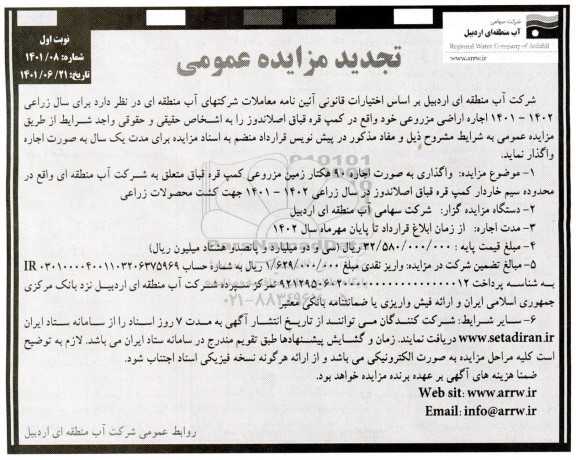 شرکت سهامی
آب منطقه‌ای اردبیل
Regional Water Company of Ardabil
www.arrw.ir
نوبت اول
شماره: ۱۴۰۱/۰۸
تاریخ: ۱۴۰۱/۰۶/۲۱
تجدید مزایده عمومی
شرکت آب منطقه ای اردبیل بر اساس اختیارات قانونی آئین نامه معاملات شرکتهای آب منطقه ای در نظر دارد برای سال زراعی
۱۴۰۲ - ۱۴۰۱ اجاره اراضی مزروعی خود واقع در کمپ قره قباق اصلاندوز را به اشخاص حقیقی و حقوقی واجد شرایط از طریق
مزایده عمومی به شرایط مشروح ذیل و مفاد مذکور در پیش نویس قرارداد منضم به اسناد مزایده برای مدت یک سال به صورت اجاره
واگذار نماید.
۱- موضوع مزایده: واگذاری به صورت اجاره ۹۰ هکتار زمین مزروعی کمپ قره قباق متعلق به شرکت آب منطقه ای واقع در
محدوده سیم خاردار کمپ قره قباق اصلاندوز در سال زراعی ۱۴۰۲ - ۱۴۰۱ جهت کشت محصولات زراعی
۲- دستگاه مزایده گزار: شرکت سهامی آب منطقه ای اردبیل
۳- مدت اجاره: از زمان ابلاغ قرارداد تا پایان مهرماه سال ۱۴۰۲
۴- مبلغ قیمت پایه : ۳۲/۵۸۰/۰۰۰/۰۰۰ ریال (سی و دو میلیارد و پانصد و هشتاد میلیون ریال)
۵- مبالغ تضمین شرکت در مزایده: واریز نقدی مبلغ ۱/۶۲۹/۰۰۰/۰۰۰ ریال به شماره حساب IR ۰۳۰۱۰۰۰۰۴۰۰۱۱۰۳۲۰۶۳۷۵۹۶۹
به شناسه پرداخت تمرکز سپرده شرکت آب منطقه ای اردبیل نزد بانک مرکزی
جمهوری اسلامی ایران و ارائه فیش واریزی یا ضمانتنامه بانکی معتبر
۶- سایر شرایط: شرکت کنندگان می توانند از تاریخ انتشار آگهی به مدت ۷ روز اسناد را از سامانه ستاد ایران
www.setadiran.ir دریافت نمایند. زمان و گشایش پیشنهادها طبق تقویم مندرج در سامانه ستاد ایران می باشد. لازم به توضیح
است کلیه مراحل مزایده به صورت الکترونیکی می باشد و از ارائه هرگونه نسخه فیزیکی اسناد اجتناب شود.
ضمنا هزینه های آگهی بر عهده برنده مزایده خواهد بود.
Web sit: www.arrw.ir
Email: info@arrw.ir
روابط عمومی شرکت آب منطقه ای اردبیل